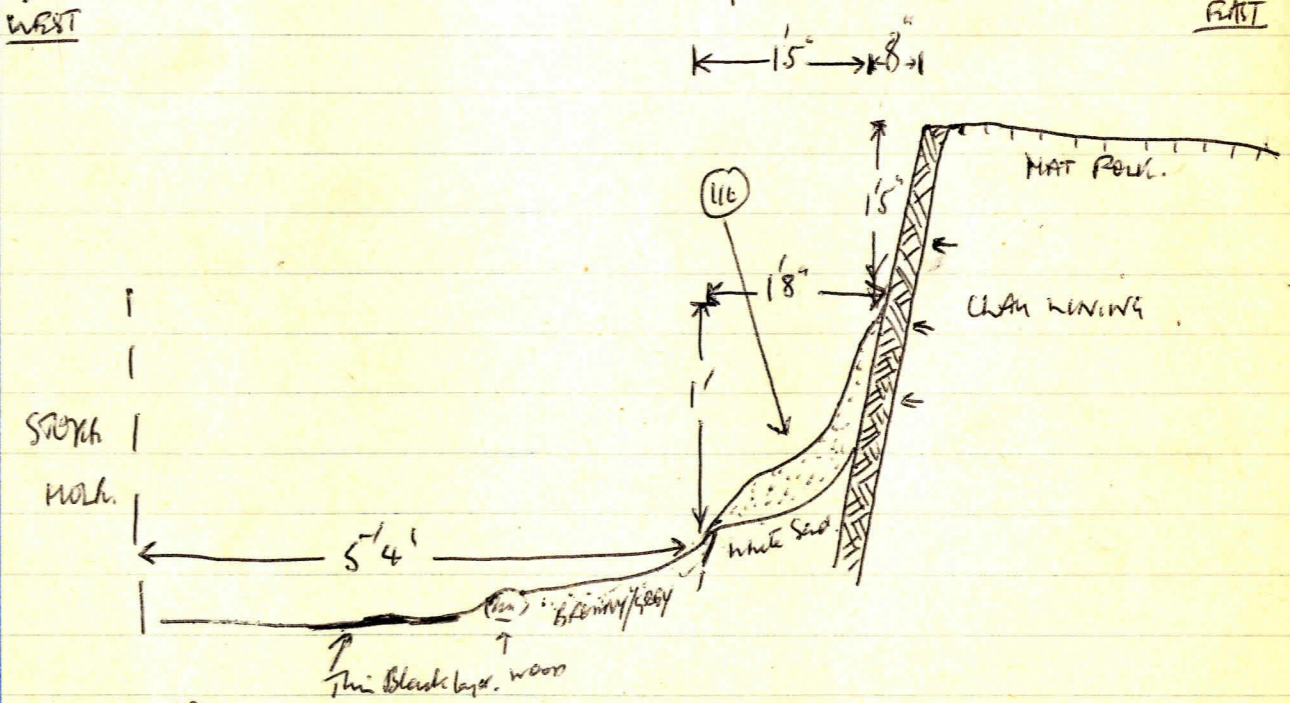 WEST
EAST
1'5"
8"
NAT
1'5"
1'8"
CLAY LINING
1'
STOKE
HOLE.
5'4'
White Sand.
Browny/Grey
Thin Black layer.
WOOD